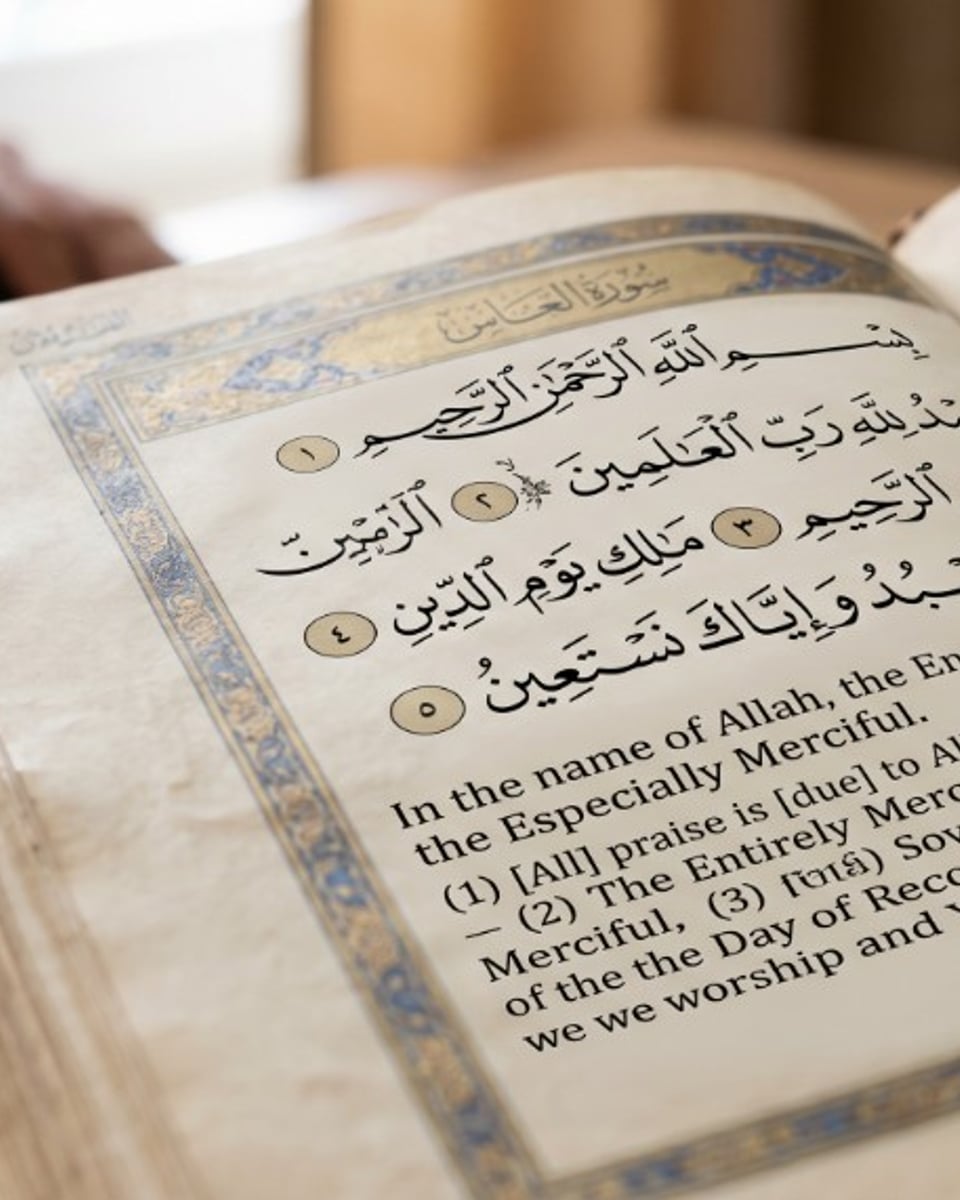 سُورَةُ
بِسْمِ ٱللَّهِ ٱلرَّحْمَٰنِ ٱلرَّحِيمِ ١
لِلَّهِ رَبِّ ٱلْعَٰلَمِينَ ٢
ٱلرَّحِيمِ ٣ مَٰلِكِ يَوْمِ ٱلدِّينِ ٤
وَإِيَّاكَ نَسْتَعِينُ ٥
In the name of Allah, the En
the Especially Merciful.
(1) [All] praise is [due] to Al
— (2) The Entirely Merc
Merciful, (3) Sov
of the the Day of Reco
we we worship and